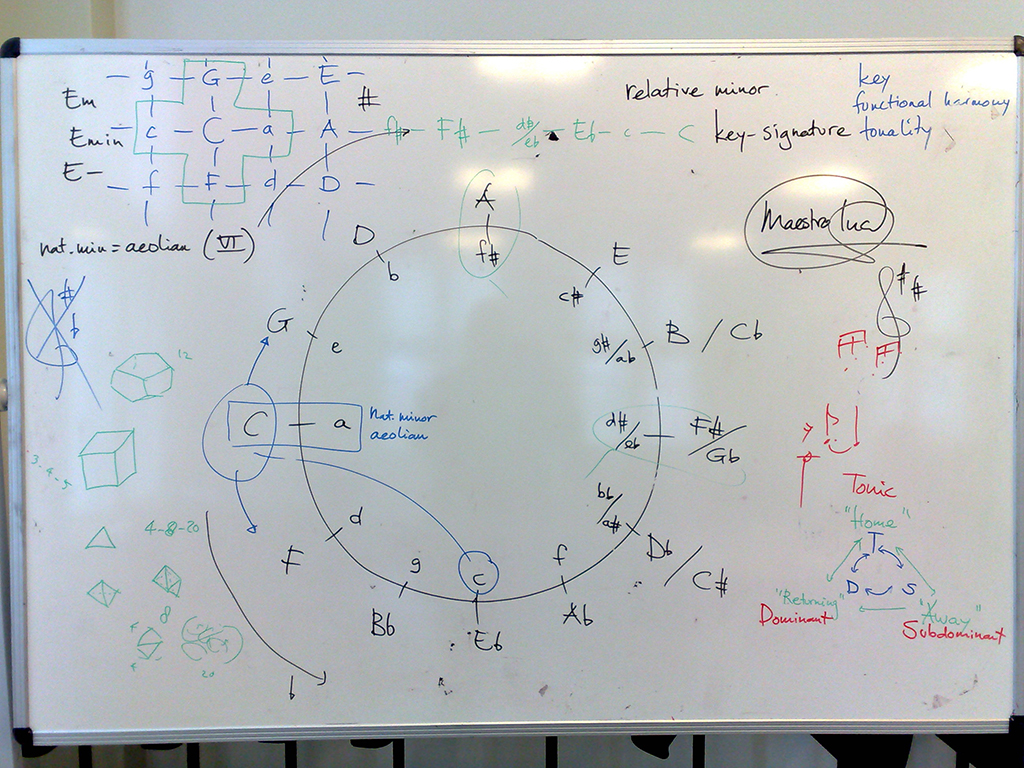 g — G — e — E —
Em
c — C — a — A — f# — F# — d#/eb — Eb — c — C
#
Emin
f — F — d — D —
E-
relative minor
key-signature
key
functional harmony
tonality
nat.min = aeolian (VI)
Maestro luca
# b
# #
A
f#
D
b
E
c#
G
e
B / Cb
g#/ab
C — a
nat. minor
aeolian
d#/eb
F#/Gb
F
d
bb/a#
Db / C#
Bb
g
c
Eb
f
Ab
b
12
3-4-5
4-8-20
8
20
Tonic
"Home"
T
D S
"Returning"
Dominant
"Away"
Subdominant